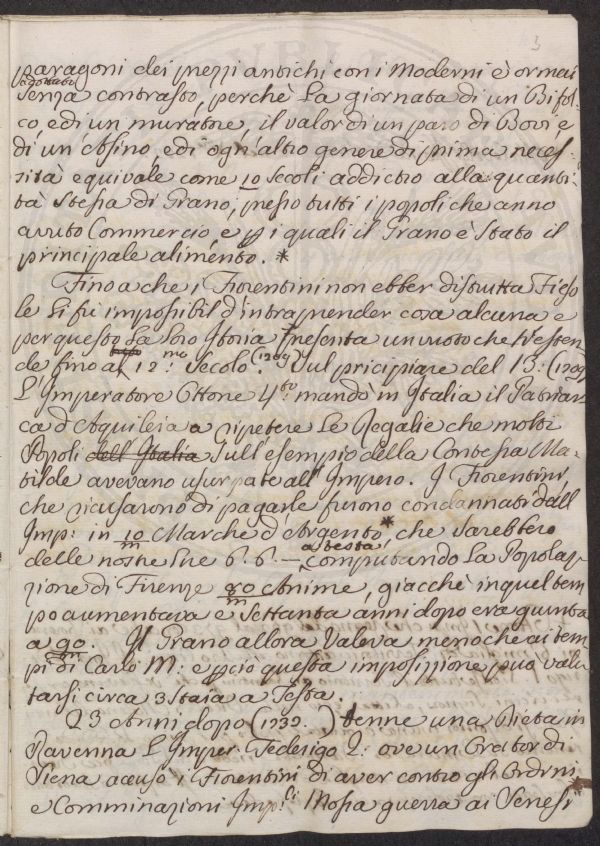 3
paragoni dei prezzi antichi con i Moderni è ormai
adottato
senza contrasto, perchè La giornata di un Bifol-
co, e di un muratore, il valor di un paro di Bovi, e
di un Asino, e di ogn'altro genere di prima neces-
sità equivale come 10 Secoli addietro alla quanti-
tà stessa di Grano, presso tutti i popoli che anno
avuto Commercio e p i quali il Grano è Stato il
principale alimento. *
Fino a che i Fiorentini non ebber distrutta Fieso
le Li fù impossibil d'intraprender cosa alcuna e
per questo La loro Istoria presenta un vuoto che si esten-
de fino al 12.mo Secolo. (1209) Sul pricipiare del 13: (1209
L'Imperatore Ottone 4.to mandò in Italia il Patriar-
ca d'Aquileia a ripetere Le Regalie che molti
Popoli dell'Italia Sull'esempio della Contessa Ma-
tilde avevano usurpate all'Impero. I Fiorentini
che ricusarono di pagarle furono condannati dall'
Imp: in 10/m Marche d'Argento*, che sarebbero
a testa
delle nostre Lire 6. 6. — computando La Popola-
zione di Firenze 80/m Anime, giacchè in quel tem
po aumentava e Settanta anni dopo era giunta
a 90. Il Grano allora Valeva meno che ai tem
pi di Carlo M: e pciò questa imposizzione può valu
tarsi circa 3 Staia a Testa.
23 Anni dopo (1232.) tenne una Dieta in
Ravenna L'Imper. Federigo 2: ove un Orator di
Siena accusò i Fiorentini di aver contro gli Ordini
e Comminazioni Imp.li Mossa guerra ai Senesi